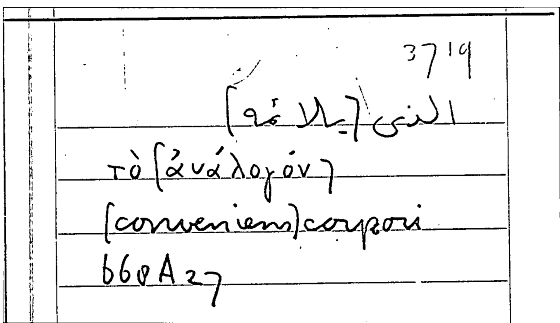 3719
الذى [يلائمه]
τὸ [ἀνάλογόν]
[conveniens] corpori
668A27